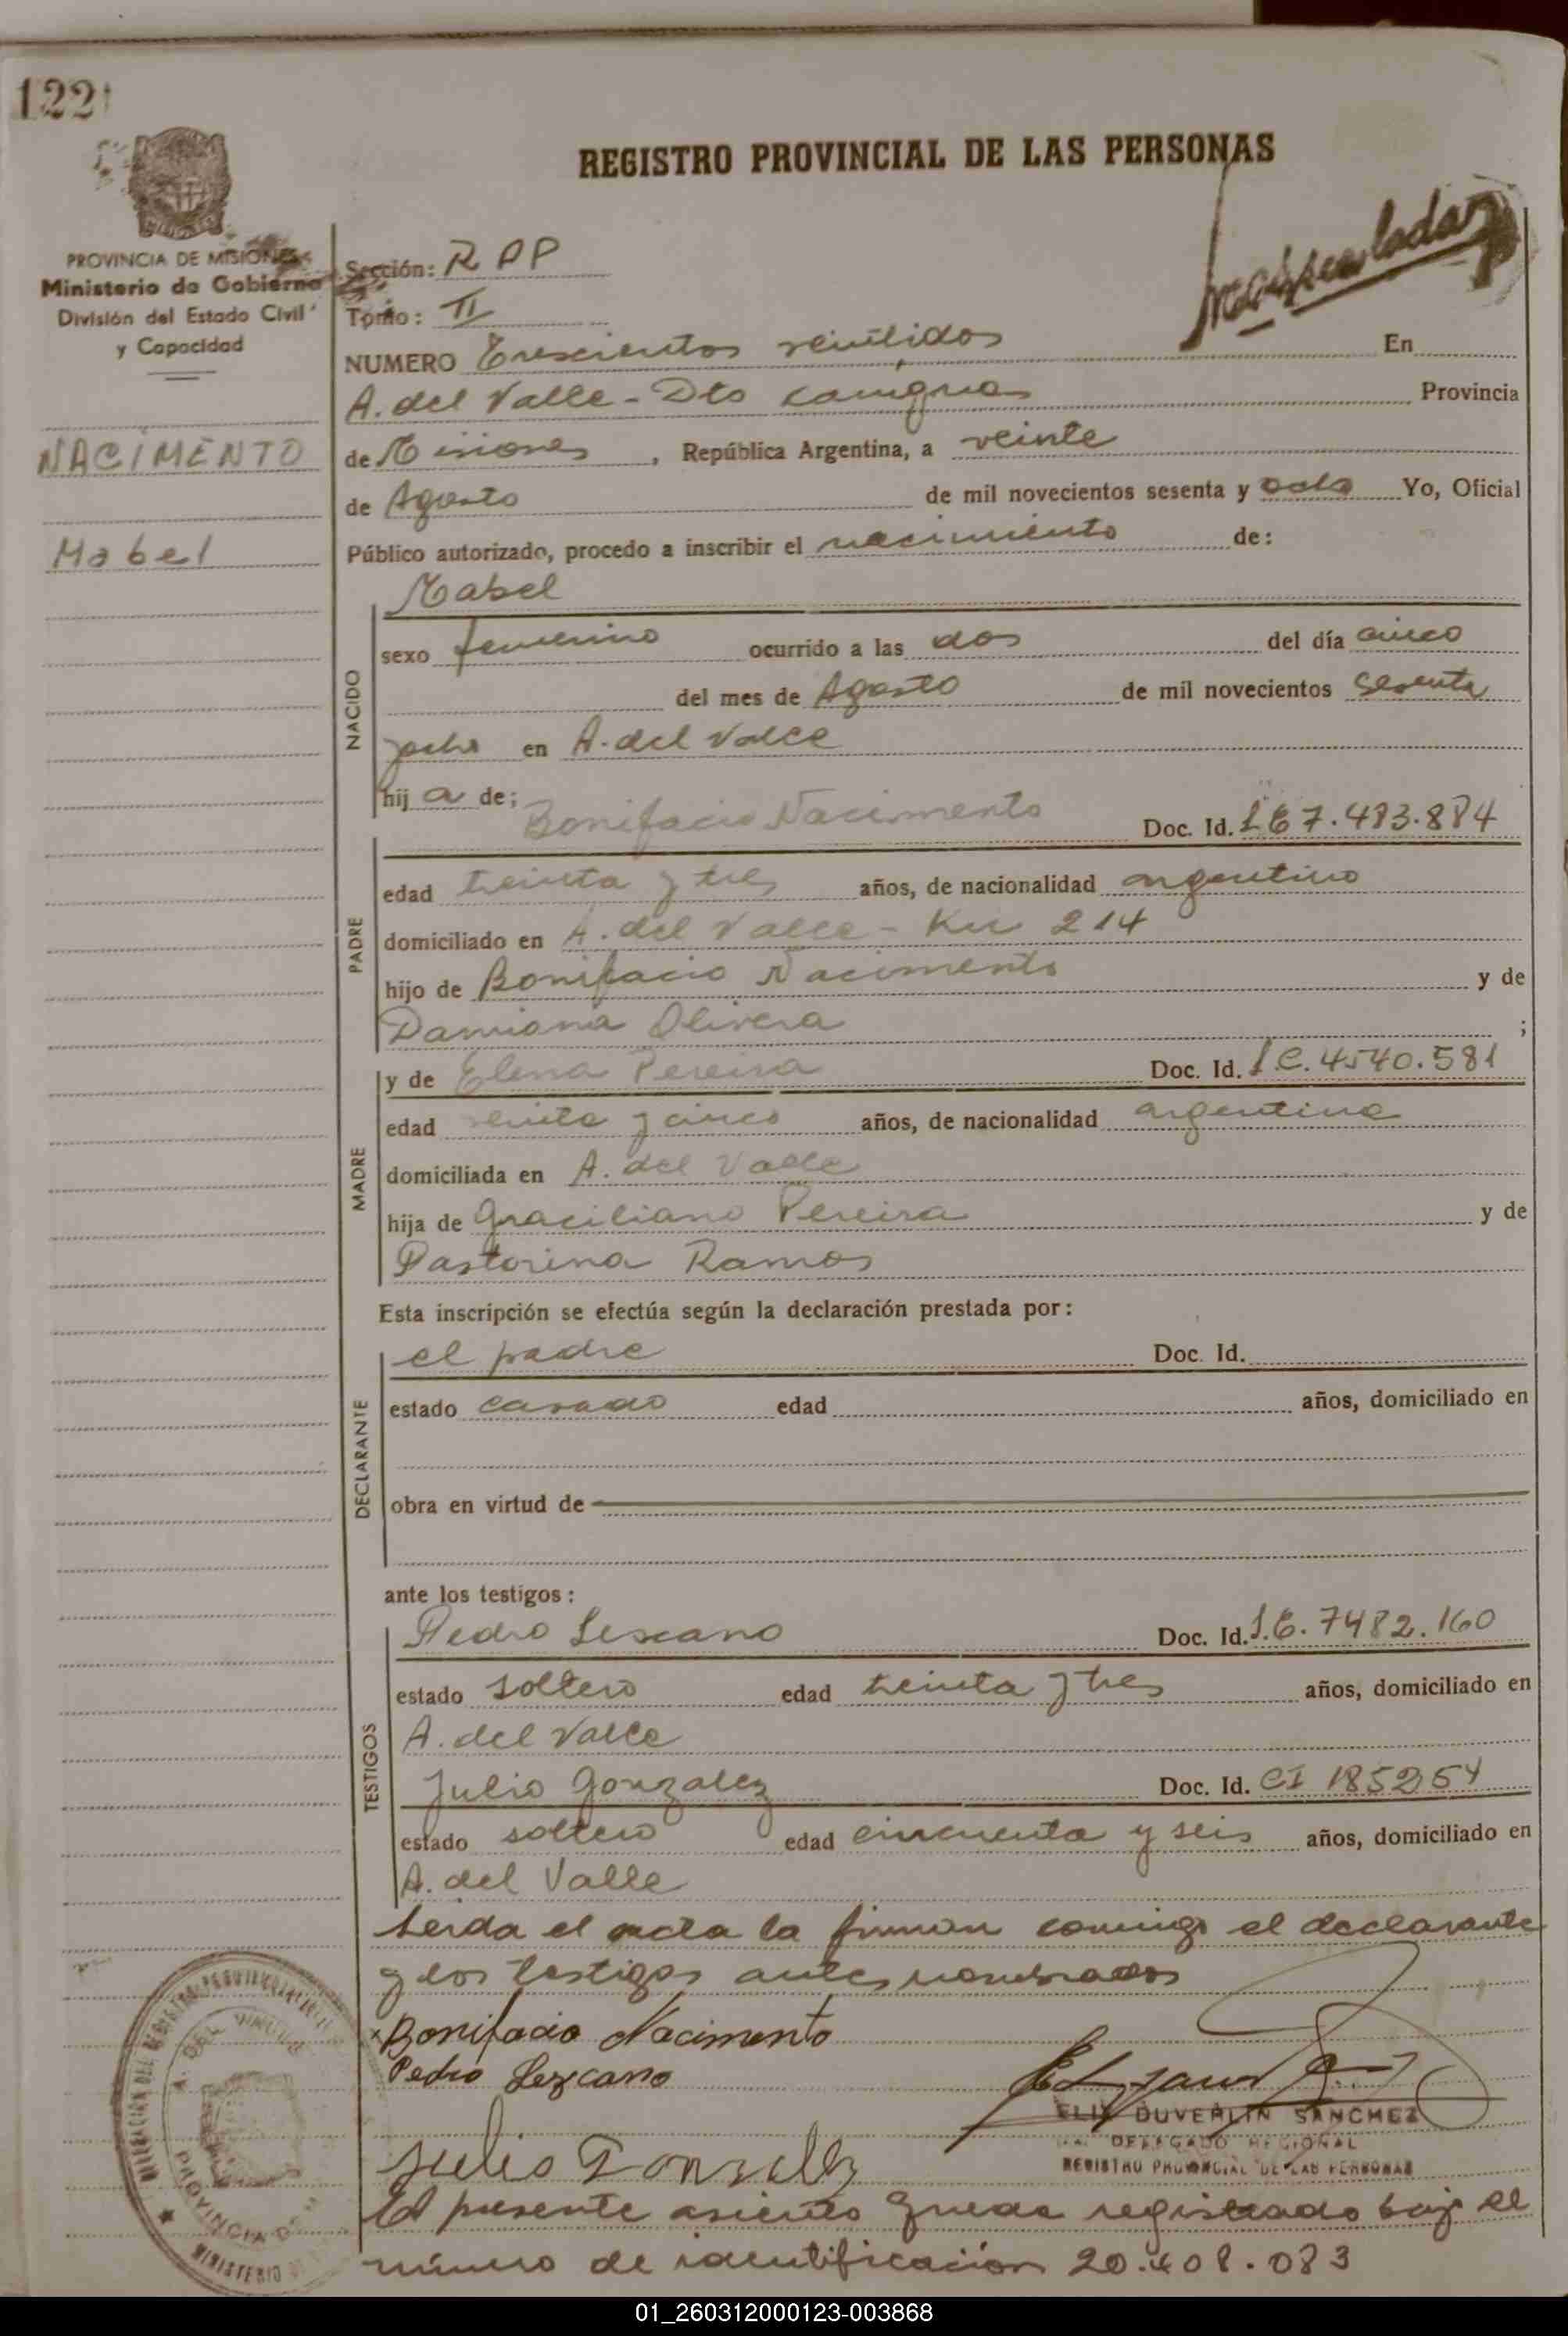 122
REGISTRO PROVINCIAL DE LAS PERSONAS
PROVINCIA DE MISIONES
Ministerio de Gobierno
División del Estado Civil
y Capacidad
NACIMENTO
Mabel
Sección:
Tomo: II
NUMERO Trescientos veintidos En
A. del Valle - Dto Cainguas Provincia
de Misiones, República Argentina, a veinte
de Agosto de mil novecientos sesenta y ocho Yo, Oficial
Público autorizado, procedo a inscribir el nacimiento de:
Mabel
NACIDO
sexo femenino ocurrido a las dos del día cinco
del mes de Agosto de mil novecientos sesenta
y ocho en A. del Valle
hija de;
Bonifacio Nacimento Doc. Id.
PADRE
edad treinta y tres años, de nacionalidad argentino
domiciliado en A. del Valle - Km 214
hijo de Bonifacio Nacimento y de
Damiana Olivera ;
MADRE
y de Elena Pereira Doc. Id. 4540.581
edad y cinco años, de nacionalidad argentina
domiciliada en A. del Valle
hija de Graciliano Pereira y de
Pastorina Ramos
Esta inscripción se efectúa según la declaración prestada por:
DECLARANTE
el padre Doc. Id.
estado casado edad años, domiciliado en
obra en virtud de
ante los testigos:
TESTIGOS
Pedro Lescano Doc. Id. 7482.160
estado soltero edad treinta y tres años, domiciliado en
A. del Valle
Julio Gonzalez Doc. Id. CI 185254
estado soltero edad cincuenta y seis años, domiciliado en
A. del Valle
Leida el acta la firman conmigo el declarante
y los testigos antes nombrados
Bonifacio Nacimento
Pedro Lezcano
Julio Gonzalez
DUVERLIN SANCHEZ
DELEGADO REGIONAL
REGISTRO PROVINCIAL DE LAS PERSONAS
El presente asiento queda registrado bajo el
número de identificación 20.408.083
01_260312000123-003868